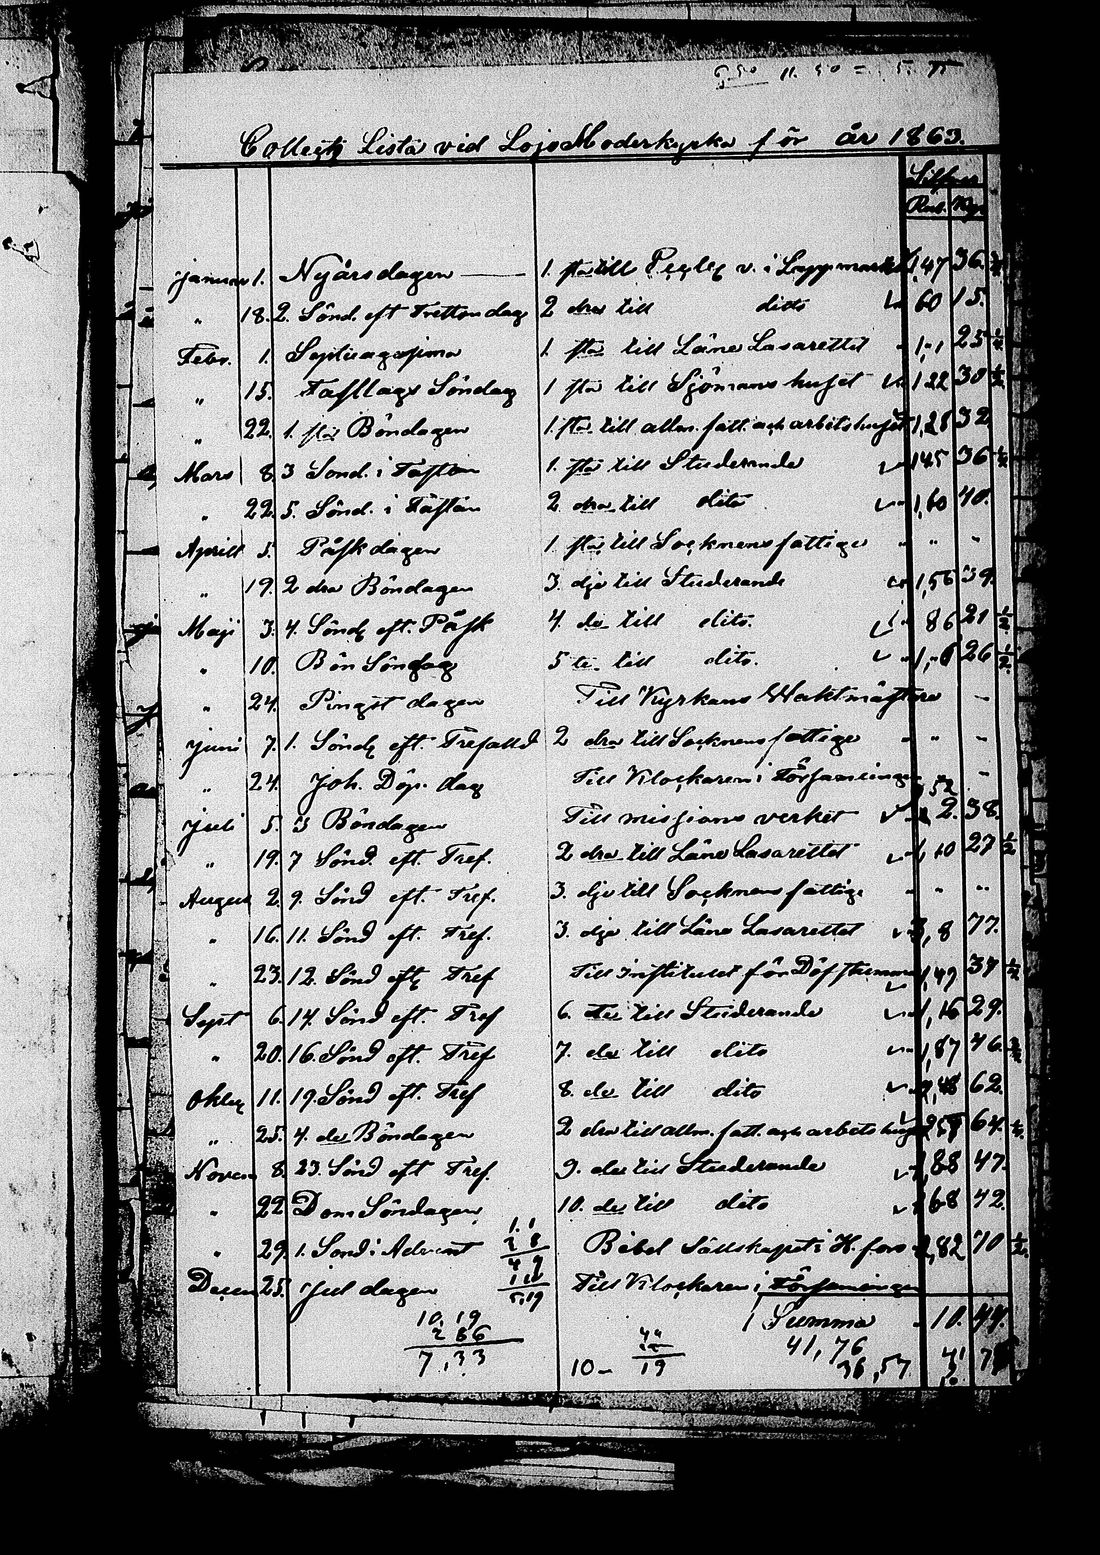 11. 50 =
Collect Lista vid Lojo Moderkyrka för år 1863.
Silfver
Rub. Kop.
Januar 1. Nyårsdagen — 1. sta till v. i Lappmarken 1,47 36.
" 18. 2. Sönd. eft Trettondag 2 dra till ditto 60 15.
Febr. 1. Septuagesima 1. sta till Läns Lasarettet 1,,1 25 ½
" 15. Fastlags Söndag 1 sta till Sjömans huset 1 22 30 ½
" 22. 1. sta Böndagen 1. sta till allm. fatt. och arbetshuset 1,28 32
Mars 8. 3 Sönd. i Fastan 1. sta till Studerande 1 45 36 ½
" 22. 5. Sönd. i Fastan 2 dra till dito 1,60 40.
Aprill 5. Påskdagen 1. sta till Socknens fattige " " "
" 19. 2 dra Böndagen 3. dje till Studerande 1,56 39.
Maji 3. 4. Sönd eft. Påsk 4. de till dito. 86 21 ½
" 10. Bön Söndag 5 te. till dito. 1,,6 26 ½
" 24. Pingst dagen Till Kyrkans Vaktmästare –
Juni 7. 1. Sönd eft. Trefald 2 dra till Socknens fattige " " "
" 24. Joh. Döp. dag Till Klockaren i Församlingen –
Juli 5. 3 Böndagen Till missions verket 2. 38.
" 19. 7 Sönd. eft. Tref. 2 dra till Läns Lasarettet 1,10 27 ½
August 2. 9. Sönd eft. Tref. 3. dje till Socknens fattige " " "
" 16. 11. Sönd eft. Tref. 3. dje till Läns Lasarettet 3,8 77.
" 23. 12. Sönd eft Tref Till institutet för Döfstumma 1,49 37 ½
Sept 6. 14. Sönd eft. Tref 6. te till Studerande 1,16 29.
" 20. 16. Sönd eft. Tref 7. de till dito 1,87 46.
Oktob 11. 19. Sönd eft. Tref 8. de till dito 2,48 62.
" 25. 4. de Böndagen 2 dra till allm. fatt. och arbetshuset 64.
Novem 8. 23. Sönd eft Tref. 9. de till Studerande 1,88 47.
" 22 Doms Söndagen 10. de till dito 1 68 42.
" 29. 1. Sönd i Advent Bibel Sällskapet i H.fors 2,82 70 ½
Decem 25. Jul dagen Till Klockaren i Församlingen
5,19
10,19
2 86
7,33
Summa 10. 44.
41,76
36,57
10– 19